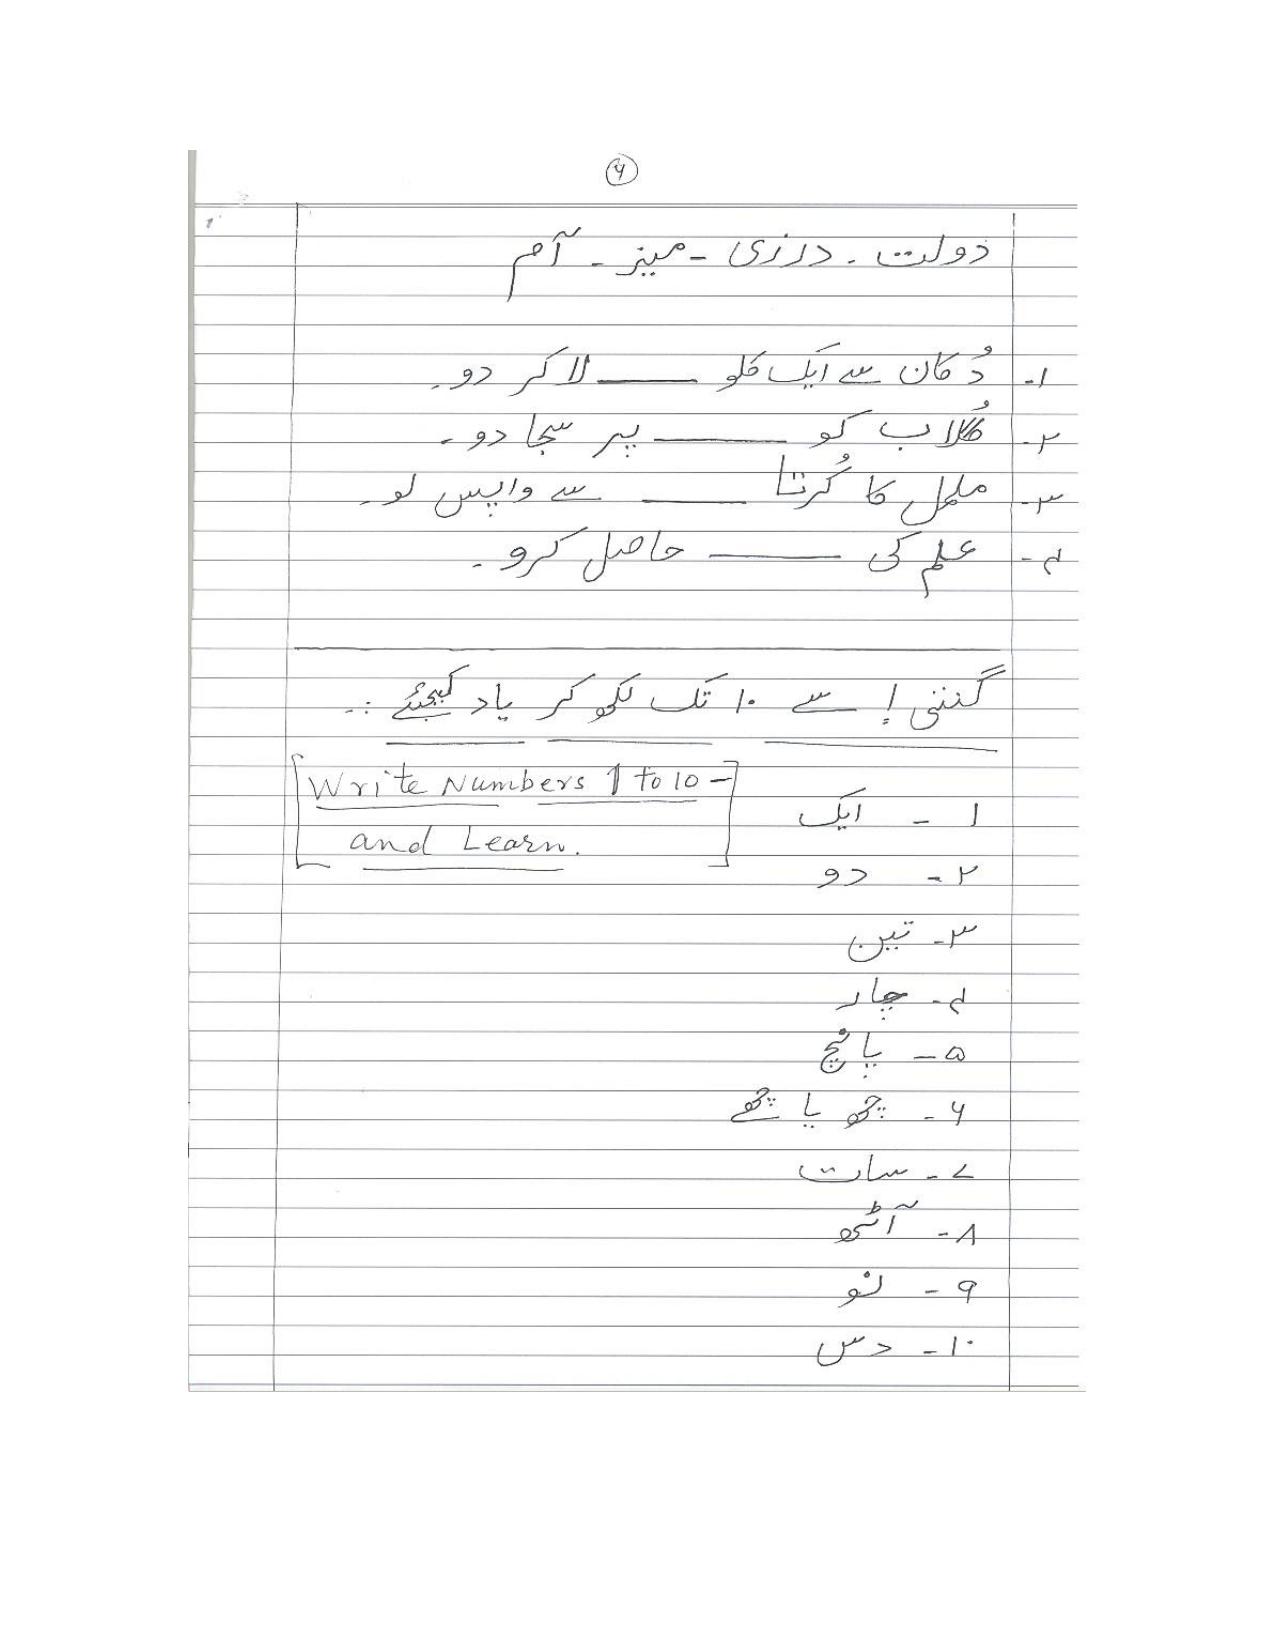 ۶
دولت - درزی - میز - آم
۱- دُکان سے ایک کلو ــــــــ لا کر دو۔
۲- گُلاب کو ــــــــ پر سجا دو۔
۳- ململ کا کُرتا ــــــــ سے واپس لو۔
۴- علم کی ــــــــ حاصل کرو۔
گنتی ۱ سے ۱۰ تک لکھ کر یاد کیجئے :-
[Write Numbers 1 to 10 -
and Learn.]
۱ - ایک
۲ - دو
۳ - تین
۴ - چار
۵ - پانچ
۶ - چھ یا چھے
۷ - سات
۸ - آٹھ
۹ - نو
۱۰ - دس